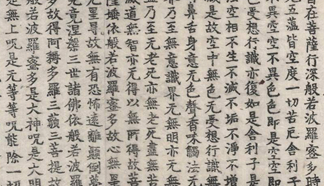 在菩薩行深般若波羅蜜多時
見五蘊皆空度一切苦厄舍利子
異空空不異色色即是空空即是
受想行識亦復如是舍利子是
空相不生不滅不垢不淨不增
是故空中無色無受想行識無
鼻舌身意無色聲香味觸法無
乃至無意識界無無明亦無
盡乃至無老死亦無老死盡
滅道無智亦無得以無所得故
薩埵依般若波羅蜜多故心無罣
無罣礙故無有恐怖遠離顛倒夢
究竟涅槃三世諸佛依般若波羅
多故得阿耨多羅三藐三菩提故
般若波羅蜜多是大神呪是大明
是無上呪是無等等呪能除一切